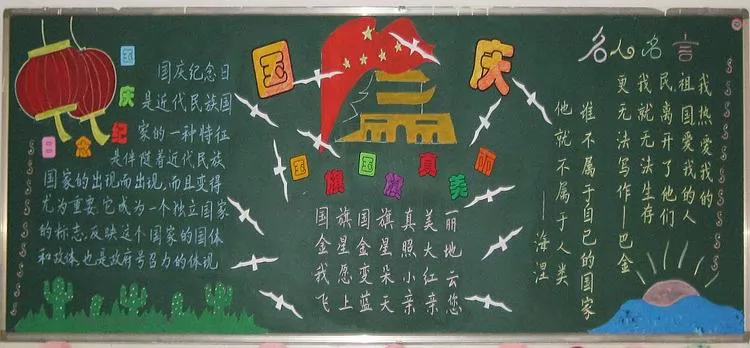 国庆纪念日
国庆纪念日
是近代民族国
家的一种特征
是伴随着近代民族
国家的出现而出现,而且变得
尤为重要.它成为一个独立国家
的标志,反映这个国家的国体
和政体,也是政府号召力的体现
国庆
国旗国旗真美丽
国旗国旗真美丽
金星金星照大地
我愿变朵小红云
飞上蓝天亲亲您
名人名言
我热爱我的
祖国爱我的人
民离开了他们
我就无法生存
更无法写作——巴金
谁不属于自己的国家
他就不属于人类
——海涅